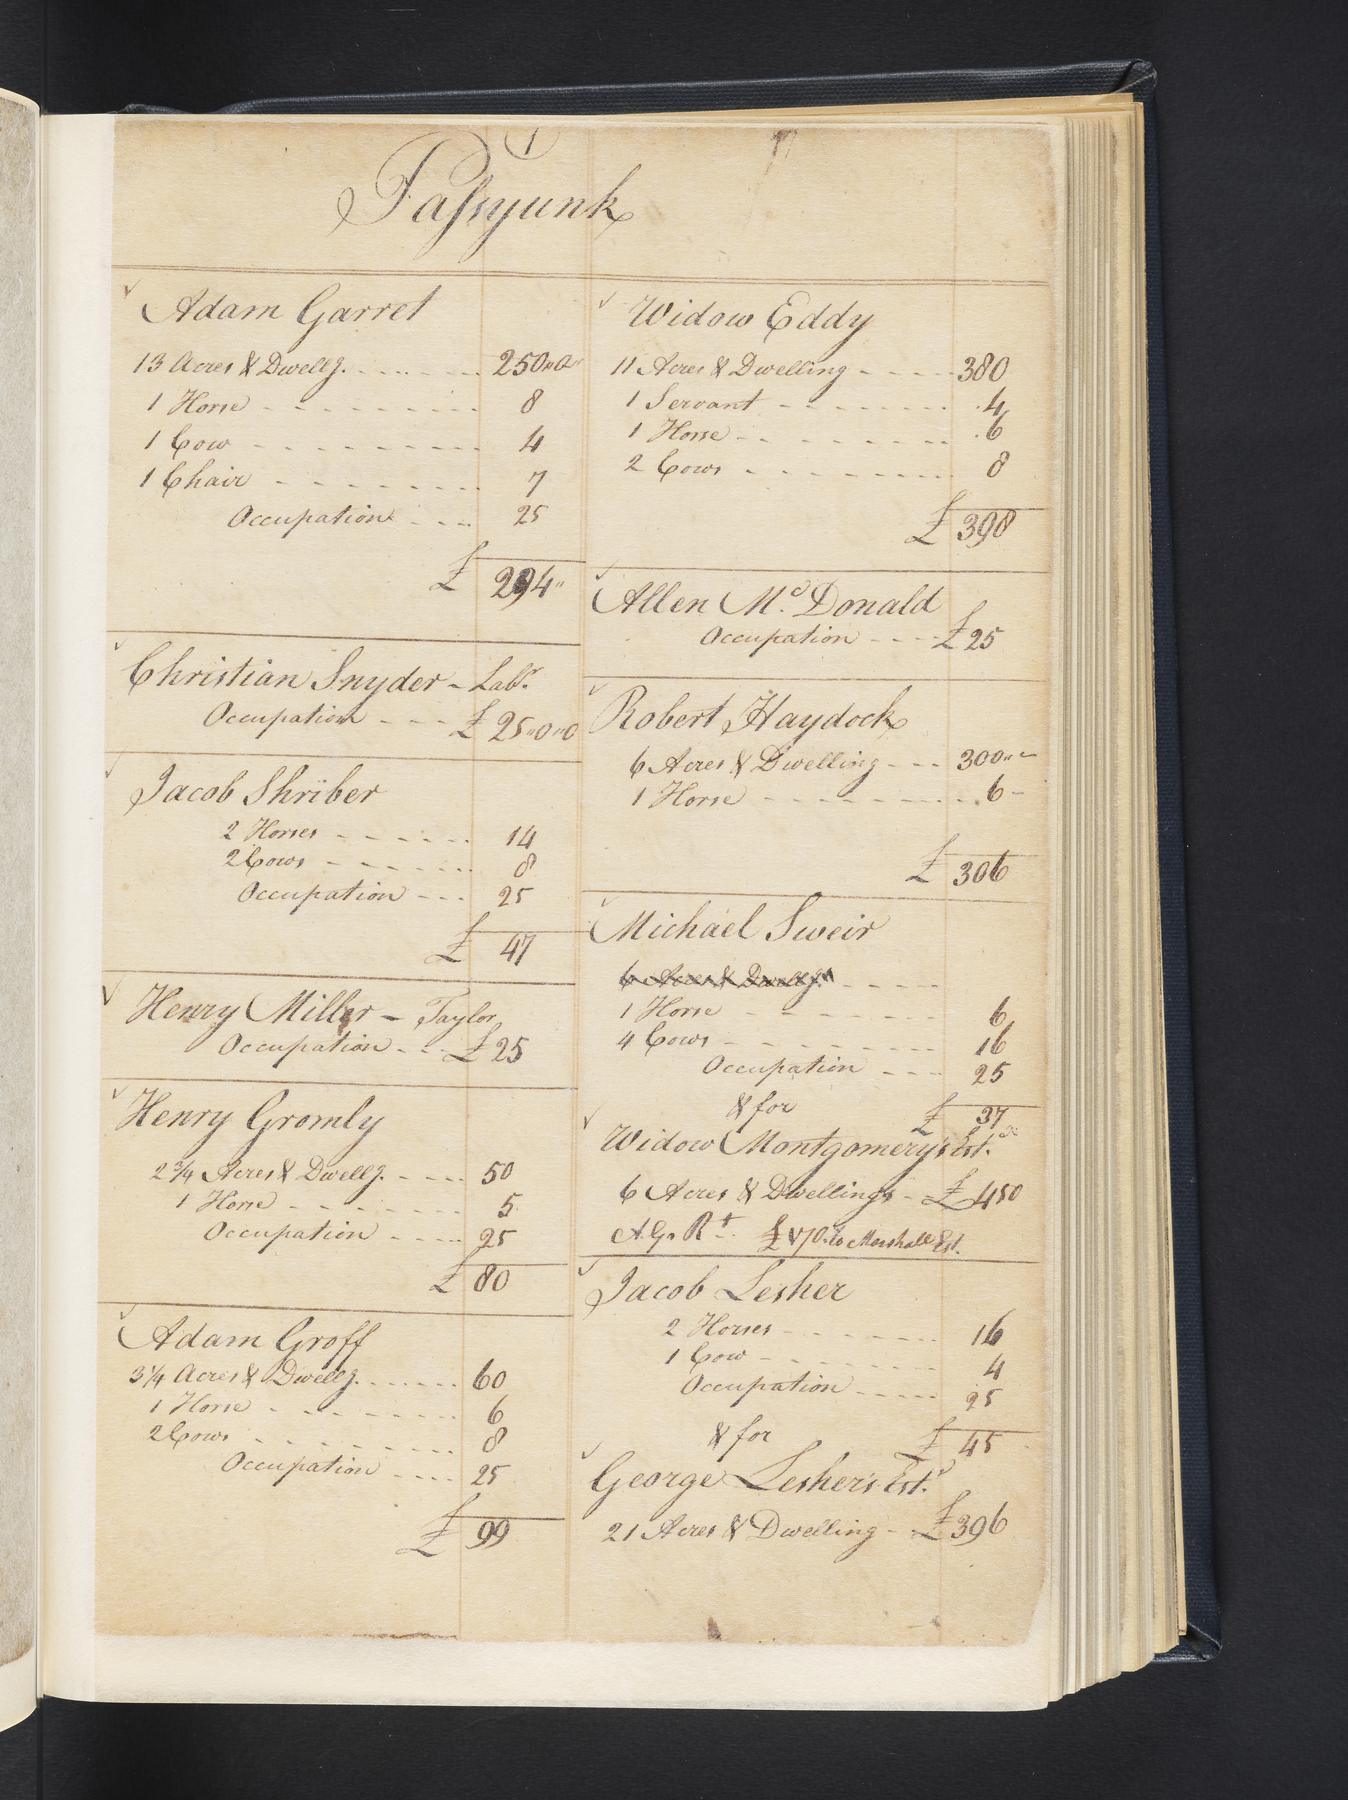 1
Passyunk
Adam Garret
13 Acres & Dwellg. 250"0"
1 Horse 8
1 Cow 4
1 Chair 7
Occupation 25
£ 294"
Christian Snyder - Labr.
Occupation £ 25"0"0
Jacob Shriber
2 Horses 14
2 Cows 8
Occupation 25
£ 47
Henry Miller - Taylor
Occupation £ 25
Henry Gromly
2 3/4 Acres & Dwellg. 50
1 Horse 5
Occupation 25
£ 80
Adam Groff
3 1/4 Acres & Dwellg. 60
1 Horse 6
2 Cows 8
Occupation 25
£ 99
Widow Eddy
11 Acres & Dwelling 380
1 Servant 4
1 Horse 6
2 Cows 8
£ 398
Allen Mc. Donald
Occupation £ 25
Robert Haydock
6 Acres & Dwelling 300"
1 Horse 6
£ 306
Michael Sweir
6 Acres & Dwellg.
1 Horse 6
4 Cows 16
Occupation 25
& for £ 37
Widow Montgomery's Est.
6 Acres & Dwellings - £ 450
A. G. Rt. £ 70. to Marshall Est.
Jacob Lesher
2 Horses 16
1 Cow 4
Occupation 25
& for £ 45
George Lesher's Est.
21 Acres & Dwelling - £ 396